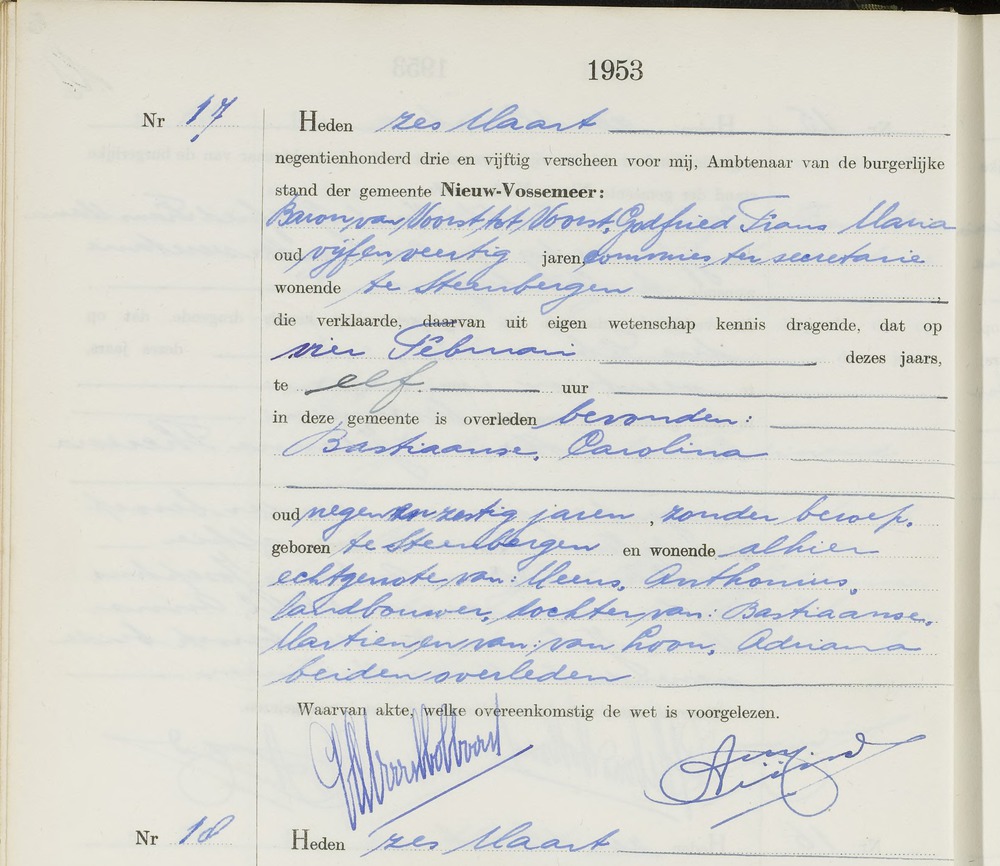 1953
Nr 17
Heden zes Maart
negentienhonderd drie en vijftig verscheen voor mij, Ambtenaar van de burgerlijke
stand der gemeente Nieuw-Vossemeer:
Baron van Voorst tot Voorst, Godfried Frans Maria
oud vijfenveertig jaren, commies ter secretarie
wonende te Steenbergen
die verklaarde, daarvan uit eigen wetenschap kennis dragende, dat op
vier Februari dezes jaars,
te elf uur
in deze gemeente is overleden bevonden:
Bastiaanse, Carolina
oud negenenzestig jaren, zonder beroep,
geboren te Steenbergen en wonende alhier
echtgenote van: Meeus, Anthonius,
landbouwer, dochter van: Bastiaanse,
Martien en van: van Loon, Adriana
beiden overleden
Waarvan akte, welke overeenkomstig de wet is voorgelezen.
Nr 18
Heden zes Maart